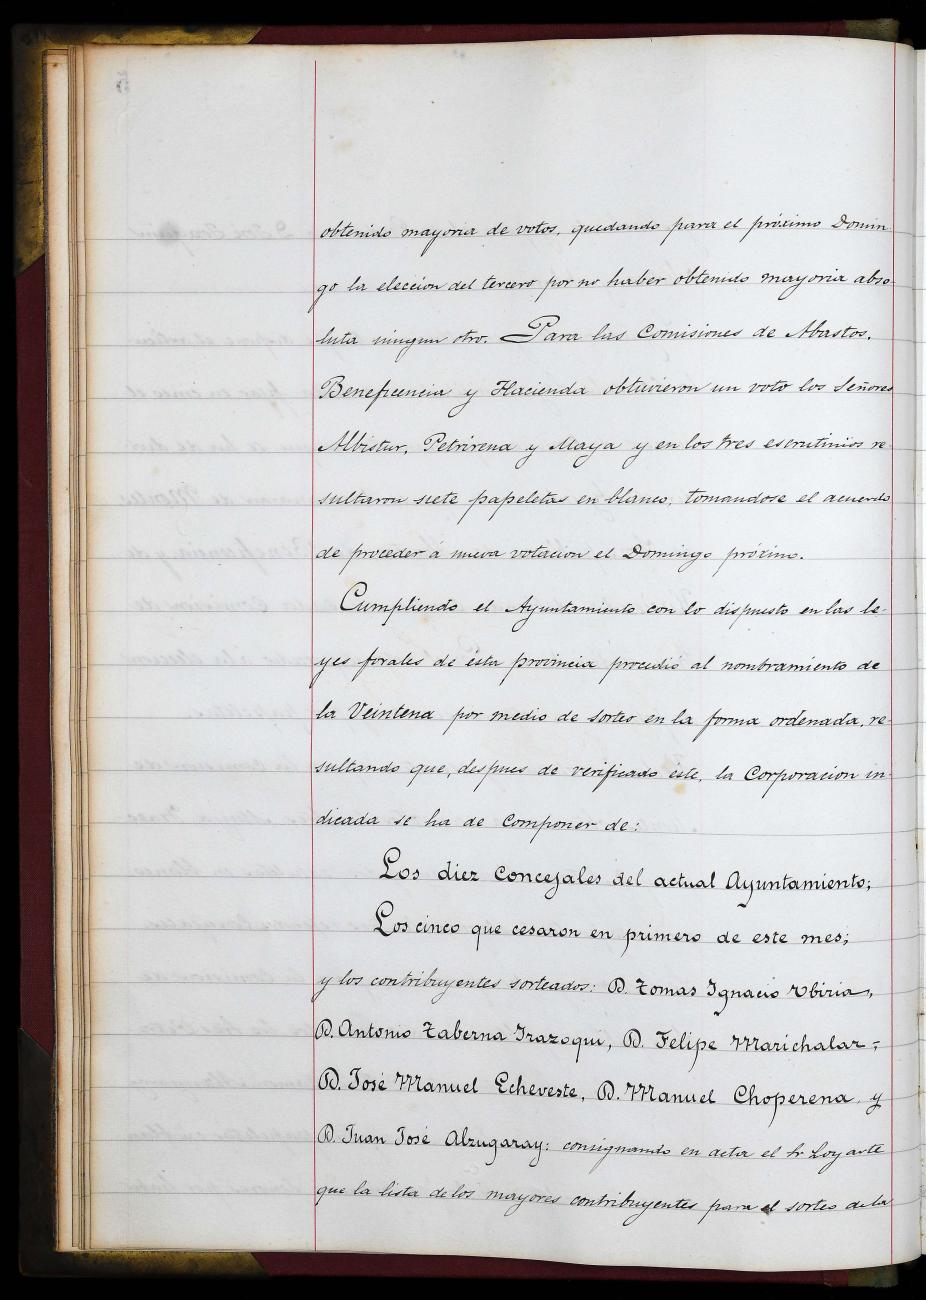 obtenido mayoria de votos, quedando para el próximo Domin
go la elección del tercero por no haber obtenido mayoria abso
luta ningun otro. Para las Comisiones de Abastos,
Beneficencia y Hacienda obtuvieron un voto los Señores
Albistur, Petrirena y Maya y en los tres escrutinios re-
sultaron siete papeletas en blanco, tomandose el acuerdo
de proceder á nueva votacion el Domingo próximo.
Cumpliendo el Ayuntamiento con lo dispuesto en las le-
yes forales de ésta provincia procedió al nombramiento de
la Veintena por medio de sorteo en la forma ordenada, re-
sultando que, despues de verificado éste, la Corporacion in-
dicada se ha de componer de:
Los diez Concejales del actual Ayuntamiento;
Los cinco que cesaron en primero de este mes;
y los contribuyentes sorteados: D. Tomas Ignacio Ubiria,
D. Antonio Taberna Irazoqui, D. Felipe Marichalar,
D. José Manuel Echeveste, D. Manuel Choperena y
D. Juan José Alzugaray: consignando en acta el Sr Loyarte
que la lista de los mayores contribuyentes para el sorteo de la